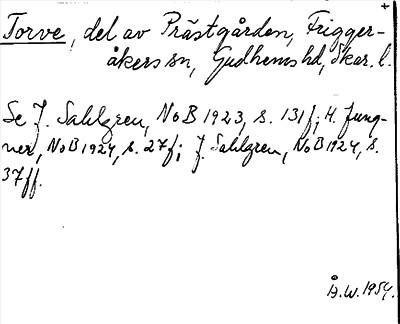 Torve, del av Prästgården, Frigger-
åkers sn, Gudhems hd, Skar. l.
Se J. Sahlgren, NoB 1923, s. 131f; H. Jung-
ner, NoB 1924, s. 27f; J. Sahlgren, NoB 1924, s.
37ff.
Å.W. 1954.